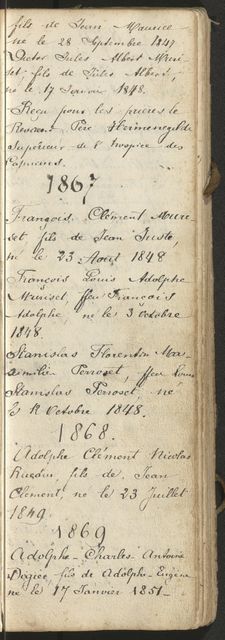 fils de Jean Maurice
né le 28 Septembre 1847
Victor Jules Albert Muri-
set, fils de Jules Albert,
né le 17 Janvier 1848.
Reçu pour les prières le
Révérend Père Herménégilde
Supérieur de l'hospice des
Capucins.
1867
François Clément Muri-
set, fils de Jean Juste,
né le 23 Août 1848
François Louis Adolphe
Muriset, ffeu François
Adolphe, né le 3 octobre
1848
Stanislas Florentin Max-
imilien Perroset, ffeu Louis
Stanislas Perroset né
le 12 Octobre 1848.
1868.
Adolphe Clément Nicolas
fils de Jean
Clément né le 23 Juillet
1849
1869
Adolphe-Charles-Antoine
fils de Adolphe-Eugène
né le 17 Janvier 1851-